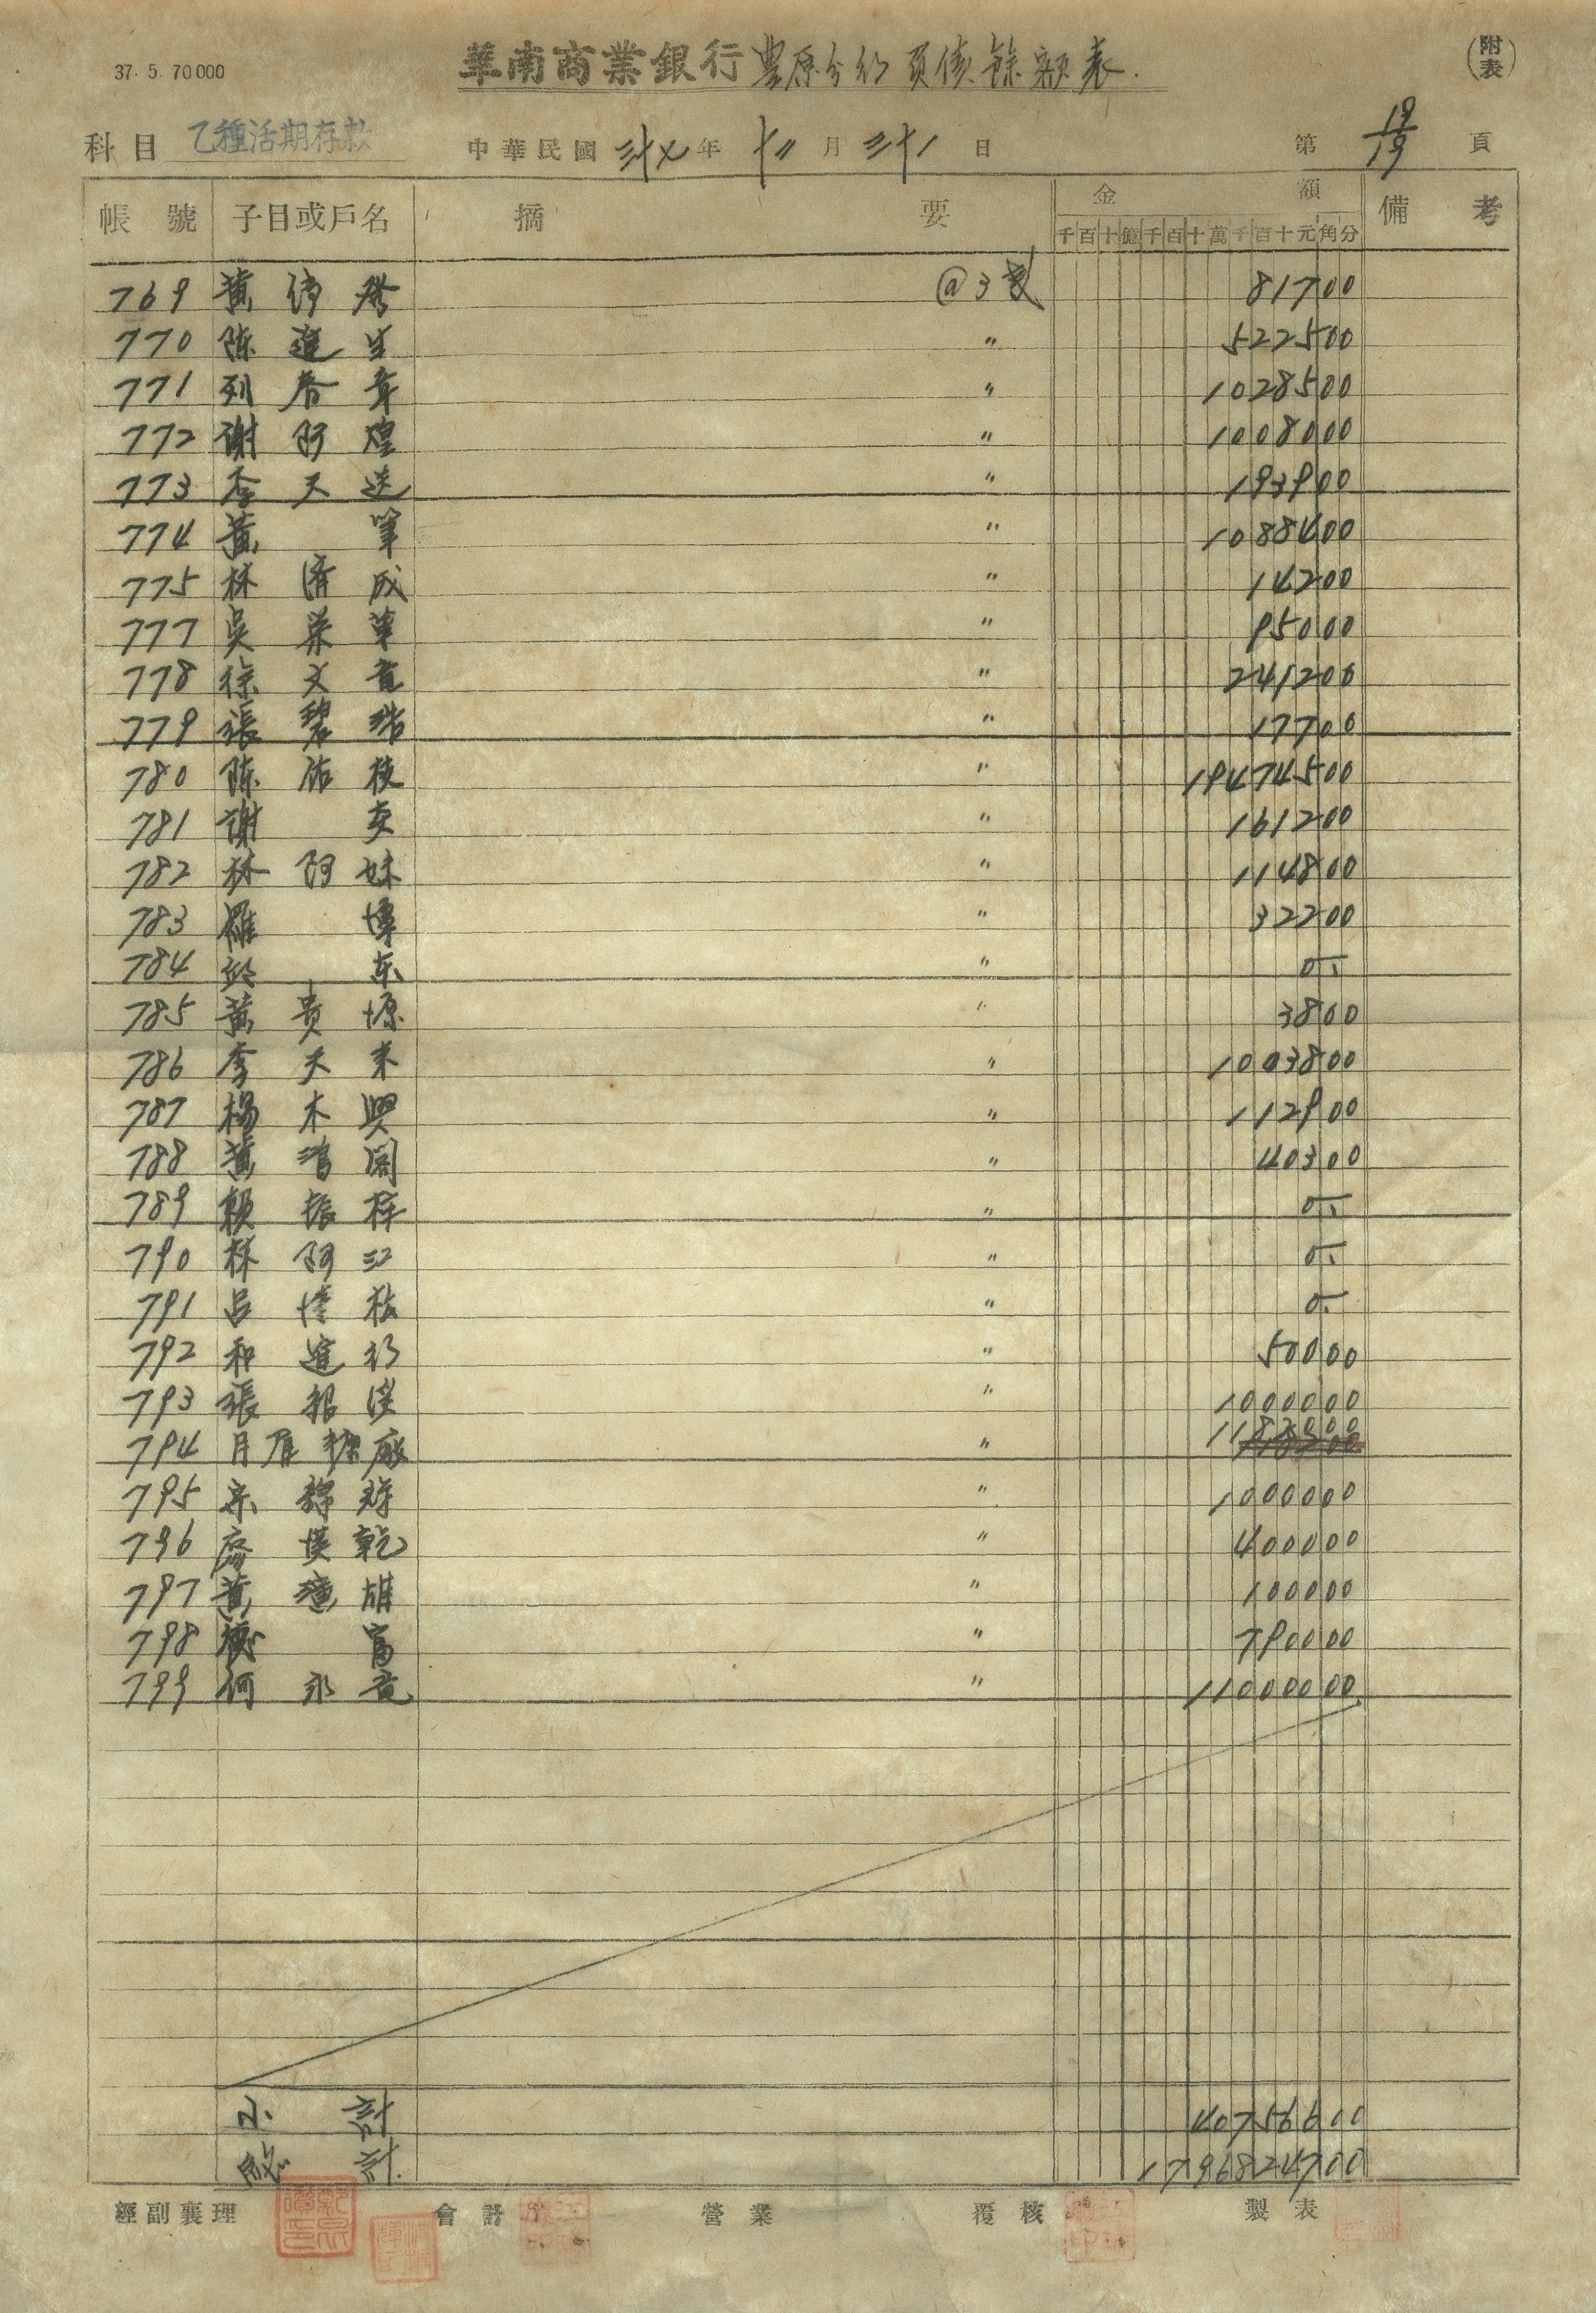 37. 5. 70000
華南商業銀行豊原分行負債餘額表.
(附表)
科目 乙種活期存款 中華民國 三十七 年 十二 月 三十一 日 第 19/19 頁
帳號 子目或戶名 摘要 金額 備考
千百十億千百十萬千百十元角分
769 黃 發 @3戔 81700
770 陈進生 〃 522500
771 春章 〃 1028500
772 谢阿煌 〃 1008000
773 李天送 〃 193900
774 黃 筆 〃 1088400
775 林濟成 〃 14200
777 吳榮華 〃 95000
778 徐文章 〃 241200
779 張碧 〃 17700
780 陈佑枝 〃 19474500
781 谢 〃 161200
782 林阿妹 〃 114800
783 羅 〃 32200
784 东 〃 0
785 黃貴源 〃 3800
786 李天来 〃 1003800
787 楊木興 〃 112900
788 黃鴻 〃 40300
789 賴振梓 〃 0
790 林阿江 〃 0
791 呂 松 〃 0
792 和進行 〃 50000
793 張招漢 〃 1000000
794 月眉糖廠 〃 1183000
795 宗 〃 1000000
796 廖漢乾 〃 400000
797 黃 雄 〃 100000
798 德富 〃 790000
799 何永竟 〃 11000000
小計 40756600
總計 1796824700
經副襄理 會計 營業 覆核 製表